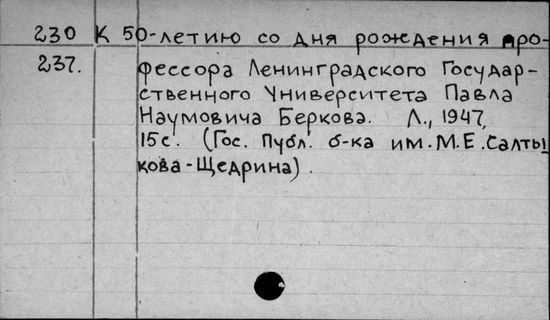 230 К 50-летию со дня рождения про-
237. фессора Ленинградского Государ-
ственного Университета Павла
Наумовича Беркова. Л., 1947,
15с. (Гос. Публ. б-ка им. М.Е. Салты
кова-Щедрина).